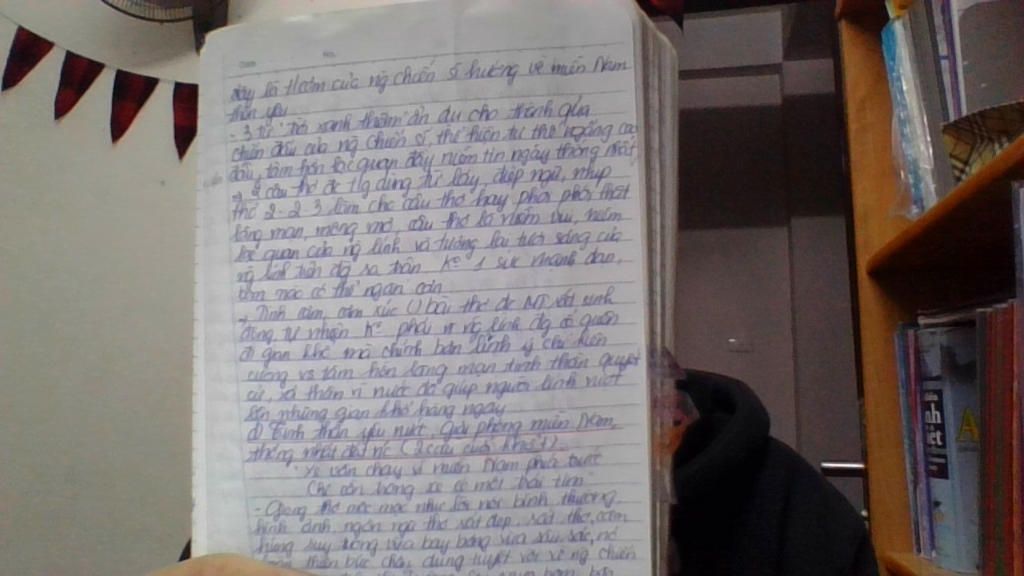 đây là t/cảm của ng chiến sĩ hướng về miền Nam
thân yêu
- 3 từ "trời xanh thêm" ẩn dụ cho thành quả
chiến đấu của ng chiến sĩ, thể hiện tư thế ngẩng cao
đầu, tâm hồn lạc quan đầy niềm tin ngày thống nhất
câu thơ đc t/g dùng từ láy, điệp ngữ, nhịp
thơ 2-2-3 làm cho câu thơ hay phơi phới thật
lãng mạn, mộng mơ, câu thơ là niềm vui, niềm
lạc quan của ng lính và tương lai tươi sáng của
ra trận. Ko 1 sức mạnh đạn,
bom nào có thể ngăn cản
Tình cảm, cảm xúc () bài thơ đc
Ko phải vì ng lính đã có quên
đi gian khổ mà chính bản lĩnh ý chí kiên
cường vs tâm hồn lãng mạn tinh thần quyết
tử, xả thân vì nước đã giúp người lính vượt
lên những gian khổ hàng ngày
d) Tinh thần yêu nước, giải phóng miền Nam,
thống nhất đất nc (2 câu cuối khổ 7)
"Xe vẫn chạy vì miền Nam phía trước
Chỉ cần trong xe có một trái tim"
- Giọng thơ mộc mạc như lời nói bình thường,
hình ảnh ngôn ngữ thơ rất đẹp, rất thơ, cảm
hứng suy tưởng vừa bay bổng vừa sâu sắc, nó
thần bức chân dung tuyệt vời về ng chiến